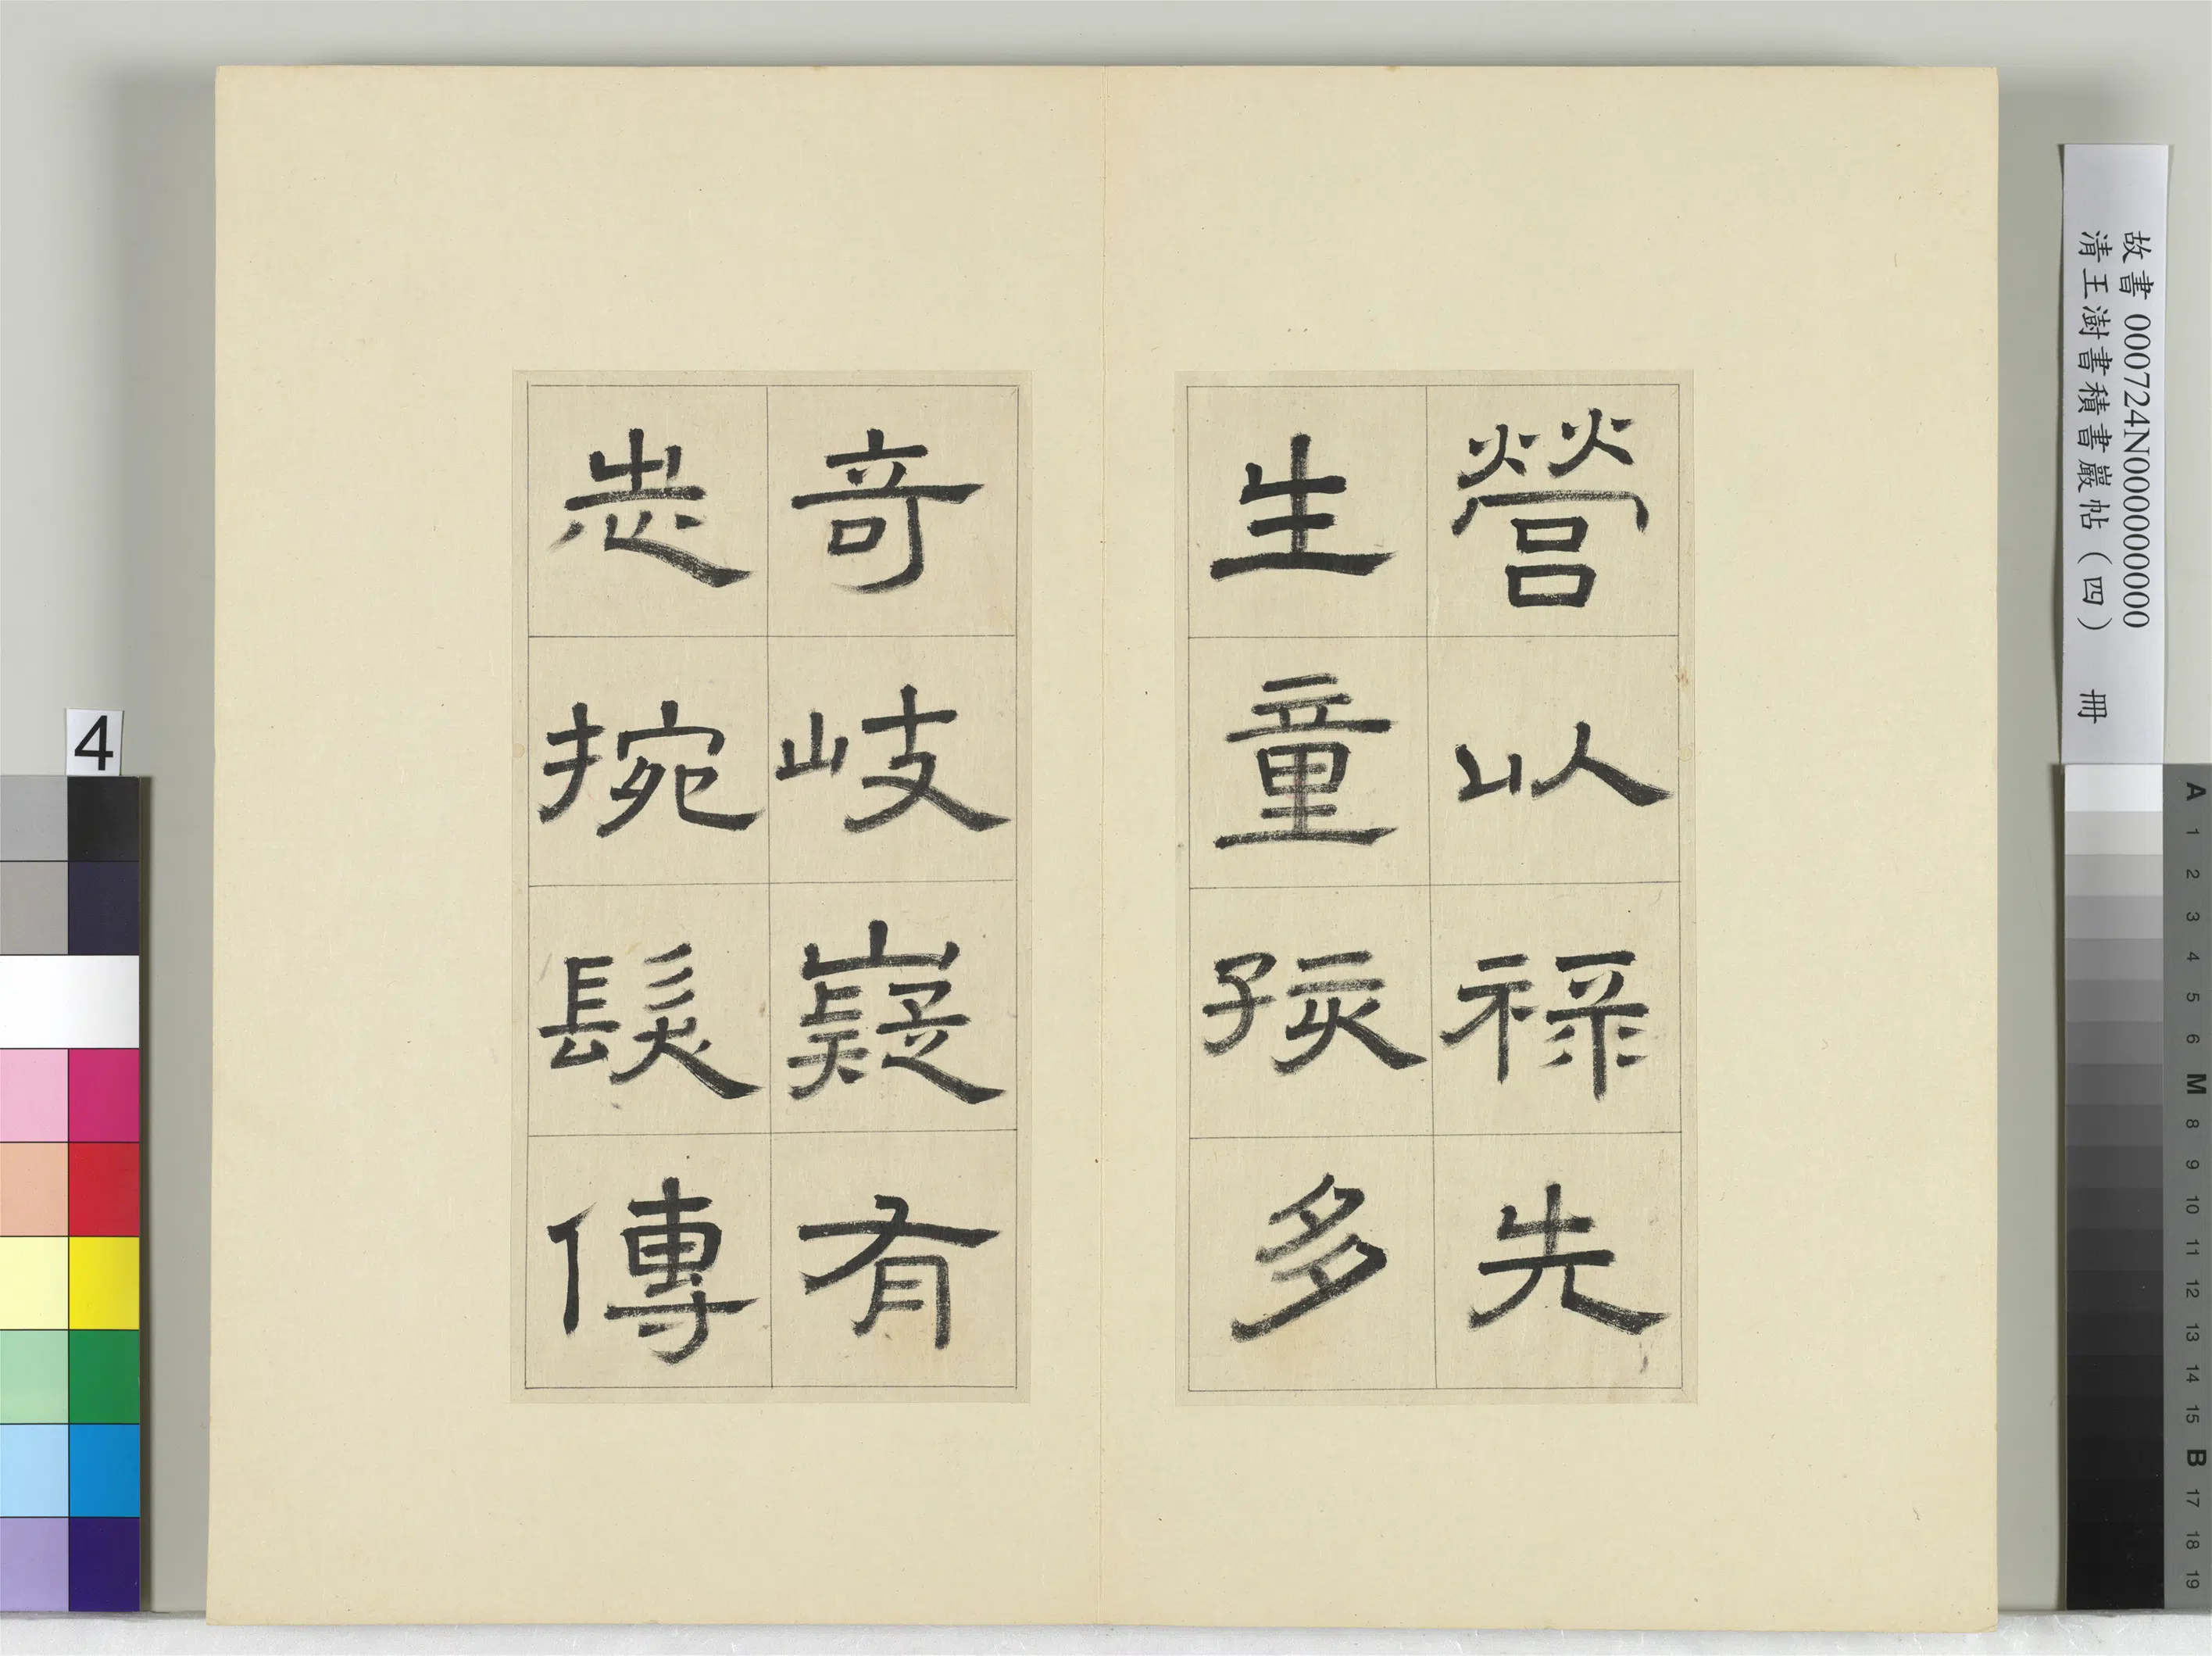 營以祿先
生童孩多
奇岐嶷有
志捥髮傳
故書 000724N000000000
清王澍書積書巖帖（四） 冊
4
A 1 2 3 4 5 6 M 8 9 10 11 12 13 14 15 B 17 18 19